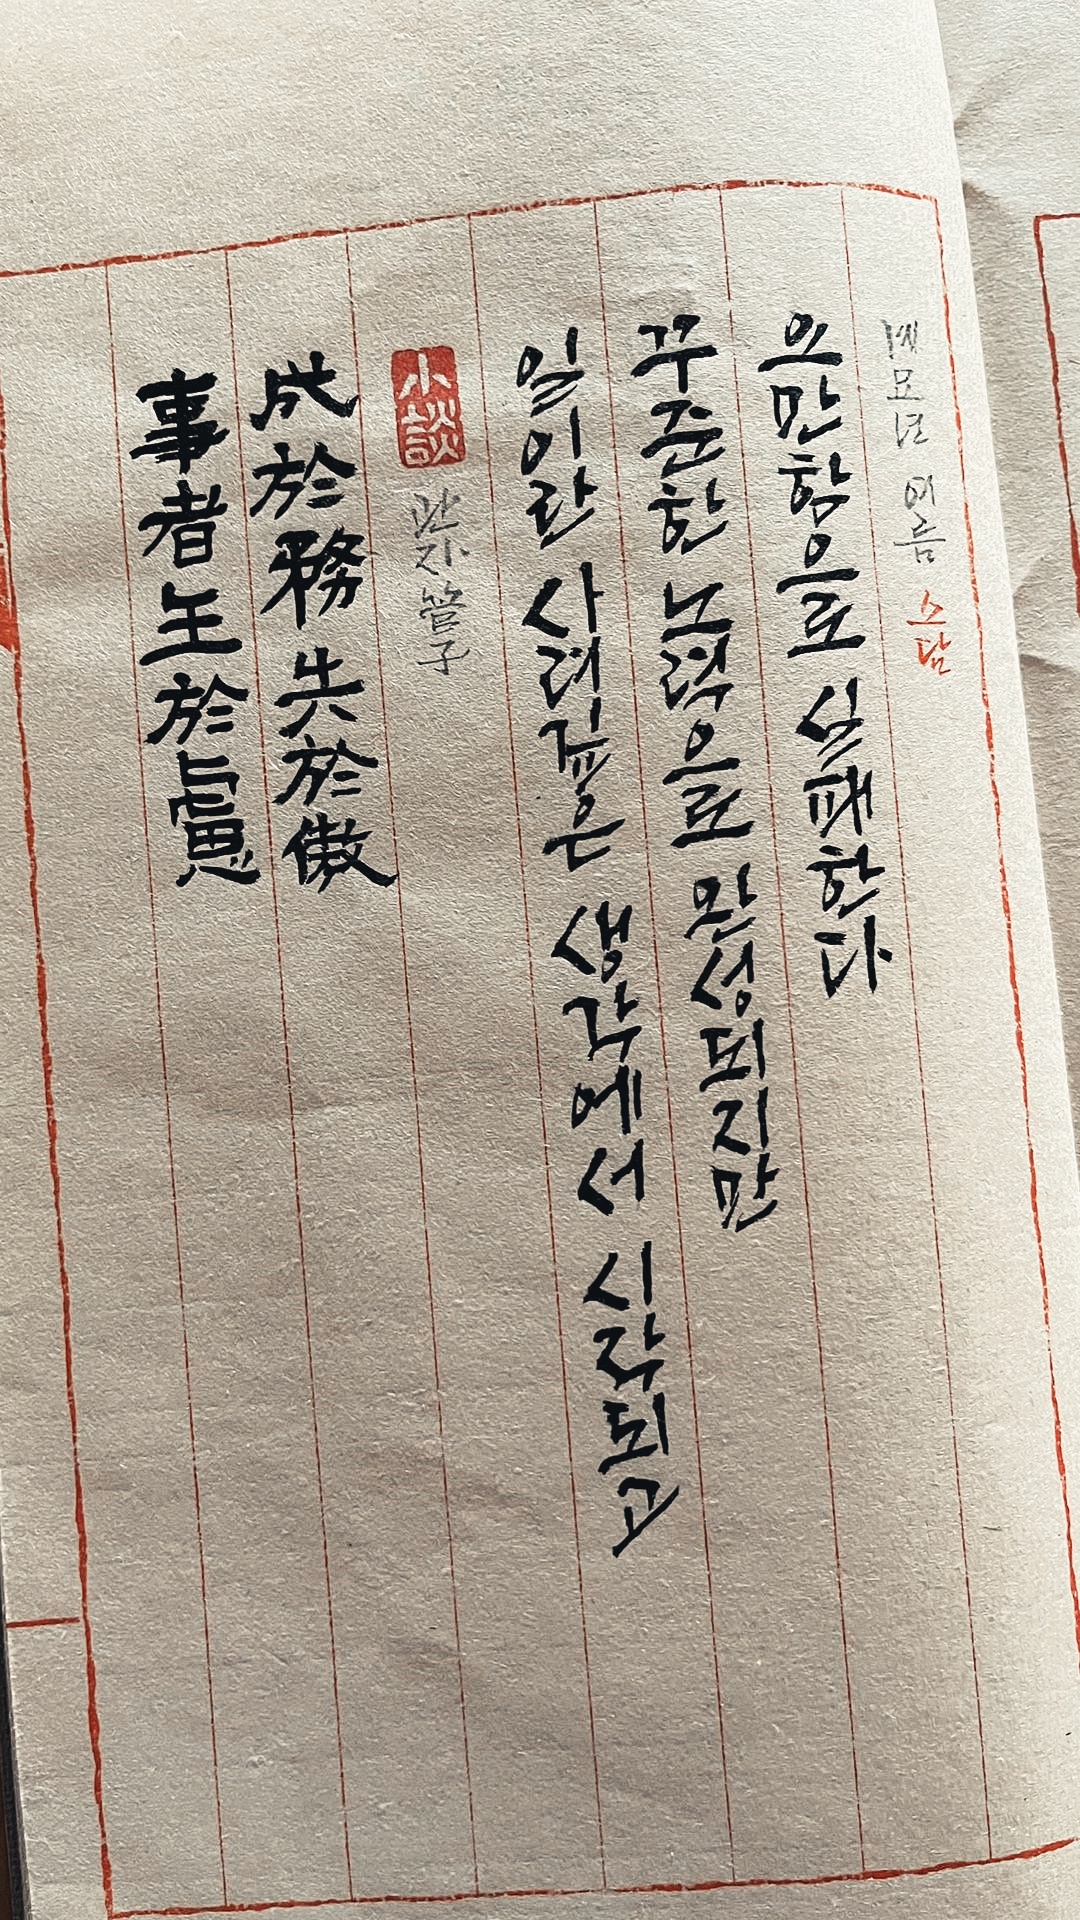 事者生於慮
成於務失於傲
小談
管子
일이란 사려깊은 생각에서 시작되고
꾸준한 노력으로 완성되지만
오만함으로 실패한다
계묘년 여름 소담